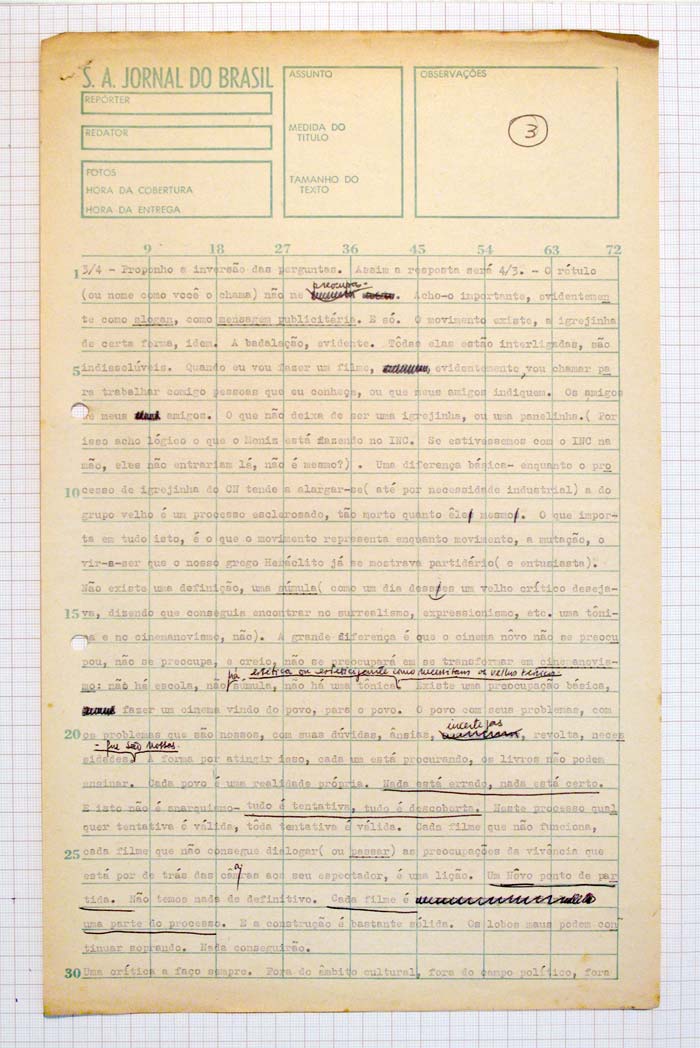 S. A. JORNAL DO BRASIL
REPÓRTER
REDATOR
FOTOS
HORA DA COBERTURA
HORA DA ENTREGA
ASSUNTO
MEDIDA DO
TITULO
TAMANHO DO
TEXTO
OBSERVAÇÕES
3
9 18 27 36 45 54 63 72
1 3/4 - Proponho a inversão das perguntas. Assim a resposta será 4/3. - O rótulo
preocupa.
(ou nome como você o chama) não me . Acho-o importante, evidentemen
te como slogan, como mensagem publicitária. E só. O movimento existe, a igrejinha
de certa forma, idem. A badalação, evidente. Tôdas elas estão interligadas, são
5 indissolúveis. Quando eu vou fazer um filme, evidentemente, vou chamar pa
ra trabalhar comigo pessoas que eu conheça, ou que meus amigos indiquem. Os amigos
de meus amigos. O que não deixa de ser uma igrejinha, ou uma panelinha.( Por
isso acho lógico o que o Moniz está fazendo no INC. Se estivessemos com o INC na
mão, eles não entrariam lá, não é mesmo?) . Uma diferença básica- enquanto o pro
10 cesso de igrejinha do CN tende a alargar-se( até por necessidade industrial) a do
grupo velho é um processo esclerosado, tão morto quanto êle mesmo. O que impor-
ta em tudo isto, é o que o movimento representa enquanto movimento, a mutação, o
vir-a-ser que o nosso grego Heráclito já se mostrava partidário( e entusiasta).
Não existe uma definição, uma súmula( como um dia desses um velho crítico deseja-
15 va, dizendo que conseguia encontrar no surrealismo, expressionismo, etc. uma tôni-
ca e no cinemanovismo, não). A grande diferença é que o cinema nôvo não se preocu
pou, não se preocupa, e creio, não se preocupará em se transformar em cinemanovis-
há estética ou esteticizante como necessitam os velhos
mo: não há escola, não súmula, não há uma tônica Existe uma preocupação básica,
fazer um cinema vindo do povo, para o povo. O povo com seus problemas, com
incertezas
20 os problemas que são nossos, com suas dúvidas, ânsias, , revolta, neces
- que são nossas.
sidades. A forma por atingir isso, cada um está procurando, os livros não podem
ensinar. Cada povo é uma realidade própria. Nada está errado, nada está certo.
E isto não é anarquismo- tudo é tentativa, tudo é descoberta. Neste processo qual
quer tentativa é válida, tôda tentativa é válida. Cada filme que não funciona,
25 cada filme que não consegue dialogar( ou passar) as preocupações da vivência que
está por de trás das câmaras aos seu espectador, é uma lição. Um Nôvo ponto de par
tida. Não temos nada de definitivo. Cada filme é
uma parte do processo. E a construção é bastante sólida. Os lobos maus podem con
tinuar soprando. Nada conseguirão.
30 Uma crítica a faço sempre. Fora do âmbito cultural, fora do campo político, fora